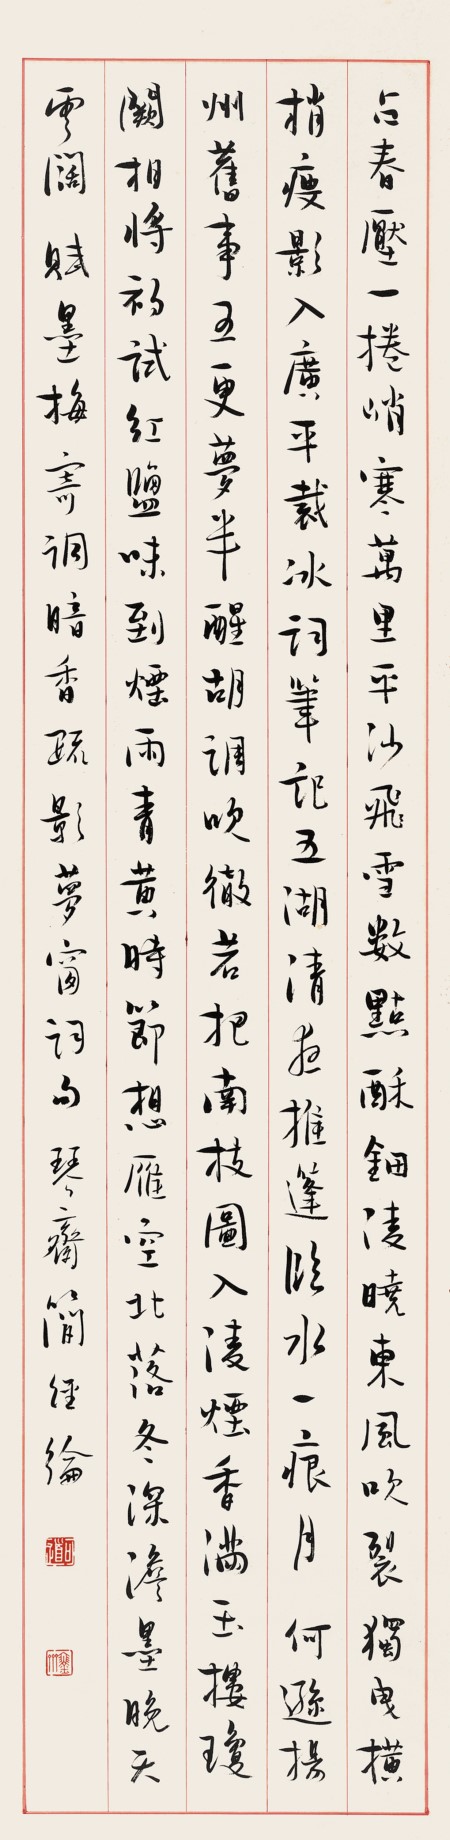 占春壓一捲峭寒萬里平沙飛雪數點酥鈿凌曉東風吹裂獨曳橫
梢瘦影入廣平裁冰詞筆記五湖清夜推篷臨水一痕月 何遜揚
州舊事五更夢半醒胡調吹徹若把南枝圖入凌煙香滿玉樓瓊
闕相將初試紅鹽味到煙雨青黃時節想雁空北落冬深澹墨晚天
雲闊 賦墨梅寄調暗香疏影夢窗詞句 琴齋簡經綸